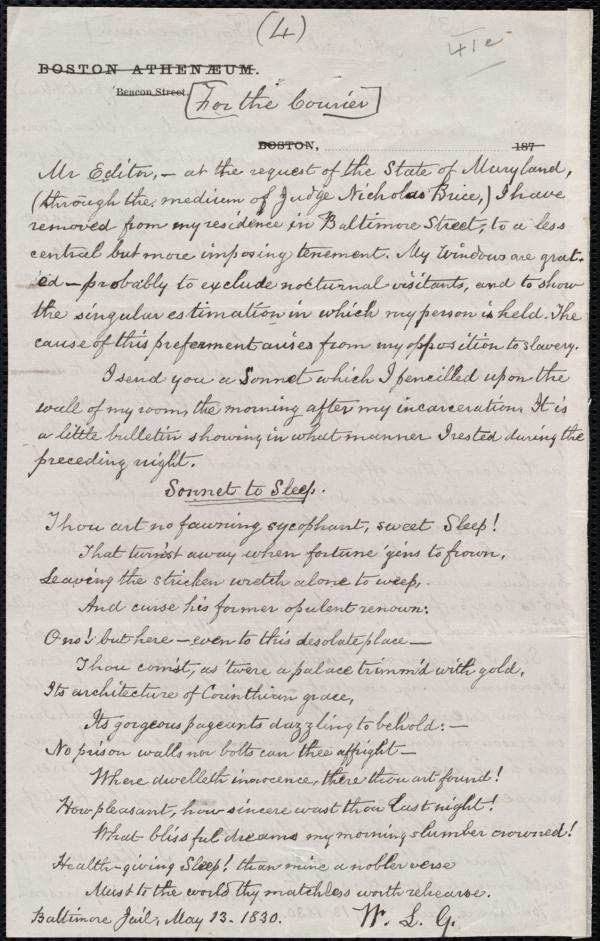 (4)
41c
BOSTON ATHENÆUM.
Beacon Street.
[For the Courier]
BOSTON, 187
Mr Editor,— at the request of the State of Maryland,
(through the medium of Judge Nicholas Brice,) I have
removed from my residence in Baltimore Street, to a less
central but more imposing tenement. My windows are grat-
ed — probably to exclude nocturnal visitants, and to show
the singular estimation in which my person is held. The
cause of this preferment arises from my opposition to slavery.
I send you a Sonnet which I pencilled upon the
wall of my room, the morning after my incarceration. It is
a little bulletin showing in what manner I rested during the
preceding night.
Sonnet to Sleep.
Thou art no fawning sycophant, sweet Sleep!
That turn'st away when fortune 'gins to frown,
Leaving the stricken wretch alone to weep,
And curse his former opulent renown:
O no! but here — even to this desolate place —
Thou com'st, as 'twere a palace trimm'd with gold,
Its architecture of Corinthian grace,
Its gorgeous pageants dazzling to behold: —
No prison walls nor bolts can thee affright —
Where dwelleth innocence, there thou art found!
How pleasant, how sincere wast thou last night!
What blissful dreams my morning slumber crowned!
Health-giving Sleep! than mine a nobler verse
Must to the world thy matchless worth rehearse.
Baltimore Jail, May 13. 1830. W. L. G.